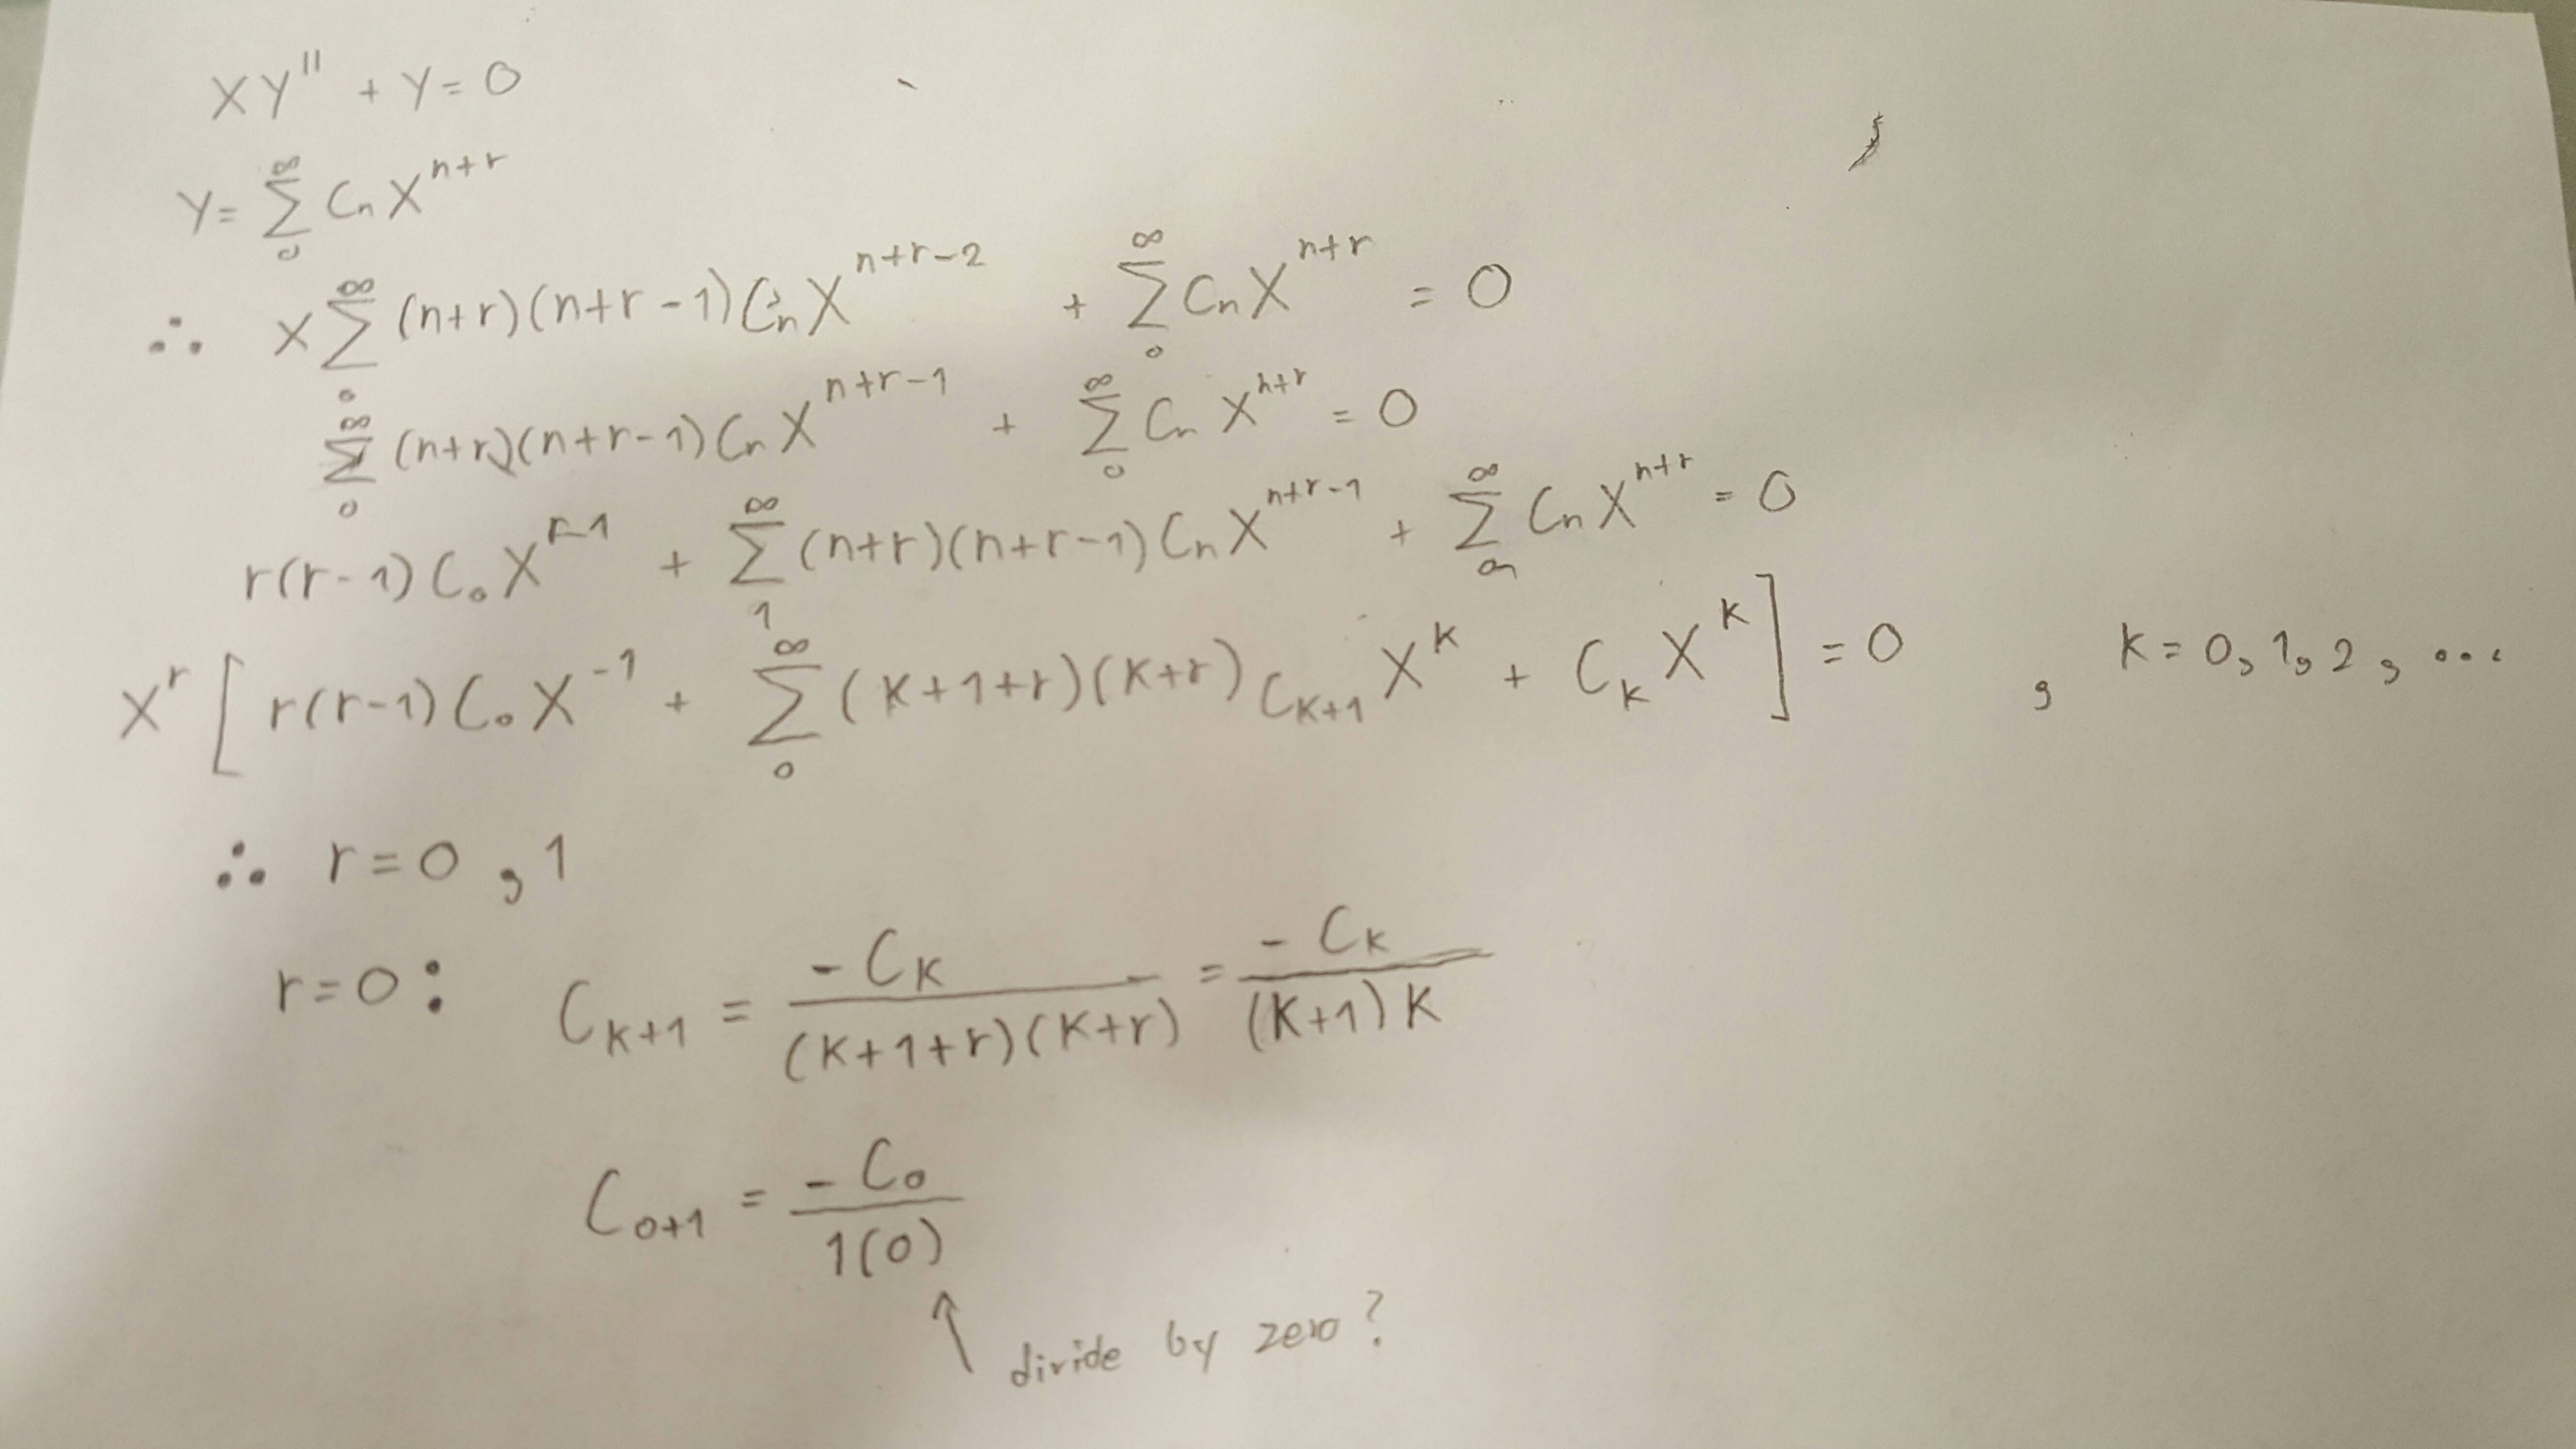 XY'' + Y = 0
Y = ∑_0^∞ C_n X^{n+r}
∴ X ∑_0^∞ (n+r)(n+r-1) C_n X^{n+r-2} + ∑_0^∞ C_n X^{n+r} = 0
∑_0^∞ (n+r)(n+r-1) C_n X^{n+r-1} + ∑_0^∞ C_n X^{n+r} = 0
r(r-1) C_0 X^{r-1} + ∑_1^∞ (n+r)(n+r-1) C_n X^{n+r-1} + ∑_0^∞ C_n X^{n+r} = 0
X^r [ r(r-1) C_0 X^{-1} + ∑_0^∞ (K+1+r)(K+r) C_{K+1} X^K + C_K X^K ] = 0 , K = 0, 1, 2, ...
∴ r = 0 , 1
r = 0 : C_{K+1} = -C_K / (K+1+r)(K+r) = -C_K / (K+1)K
C_{0+1} = -C_0 / 1(0)
↑ divide by zero ?